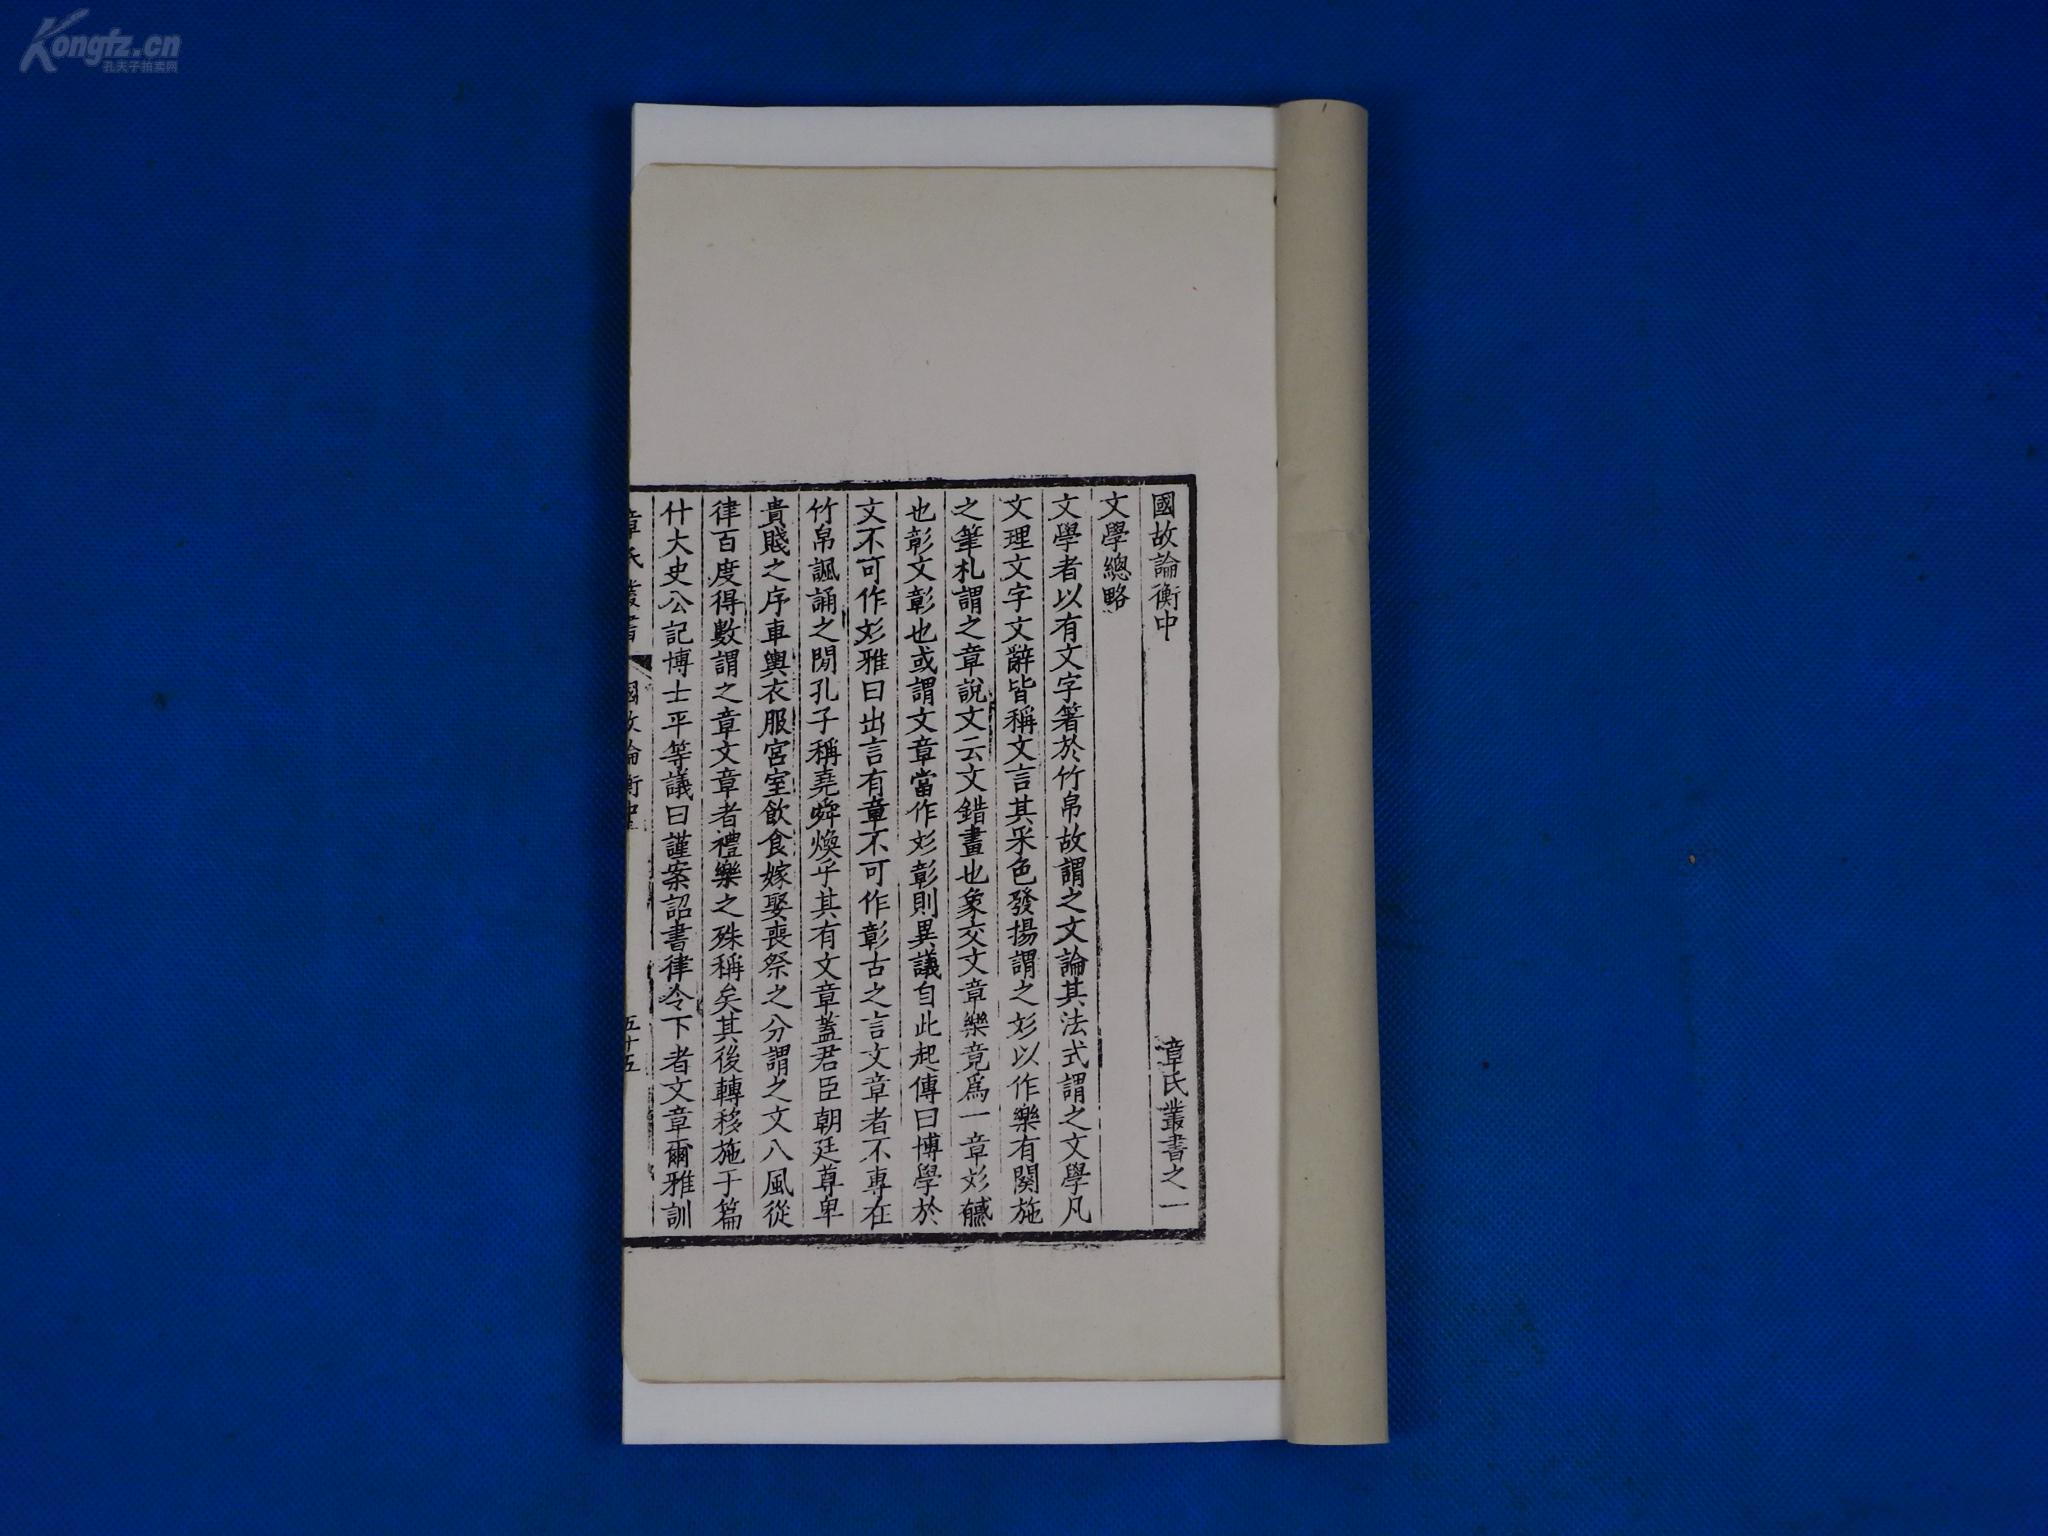 國故論衡中 章氏叢書之一
文學總略
文學者以有文字箸於竹帛故謂之文論其法式謂之文學凡
文理文字文辭皆稱文言其采色發揚謂之彣以作樂有闋施
之筆札謂之章說文云文錯畫也象交文章樂竟爲一章彣𢒈
也彰文彰也或謂文章當作彣彰則異議自此起傳曰博學於
文不可作彣雅曰出言有章不可作彰古之言文章者不專在
竹帛諷誦之閒孔子稱堯舜煥乎其有文章蓋君臣朝廷尊卑
貴賤之序車輿衣服宮室飲食嫁娶喪祭之分謂之文八風從
律百度得數謂之章文章者禮樂之殊稱矣其後轉移施于篇
什大史公記博士平等議曰謹案詔書律令下者文章爾雅訓
章氏叢書 國故論衡中 五十五
Kongfz.cn
孔夫子拍卖网